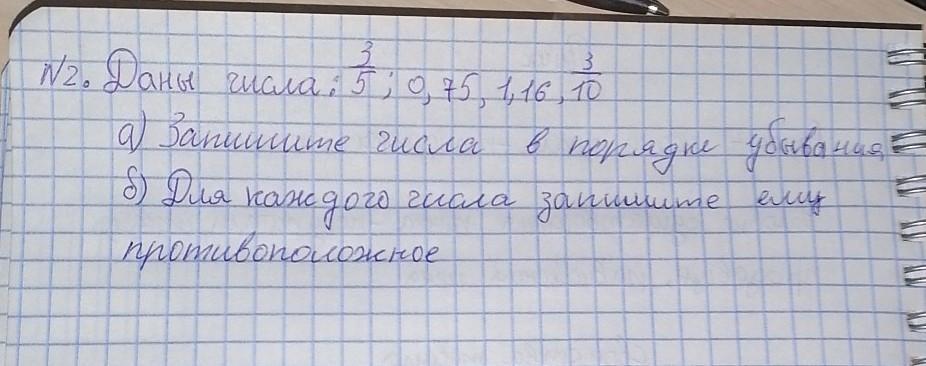 N2. Даны числа: 3/5; 0,75, 1,16, 3/10
а) Запишите числа в порядке убывания
б) Для каждого числа запишите ему
противоположное